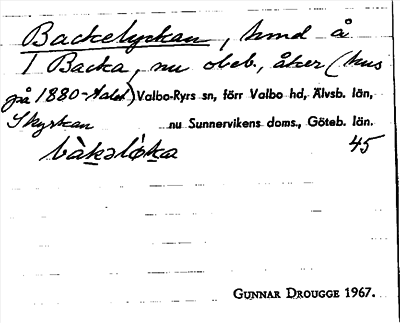 Backelyckan, hmd å
1 Backa, nu obeb., åker (hus
på 1880-talet) Valbo-Ryrs sn, förr Valbo hd, Älvsb. län,
Skyrkan nu Sunnervikens doms., Göteb. län.
bàkəlỏka 45
GUNNAR DROUGGE 1967.